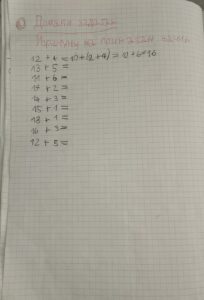 Домаћи задатак
12 + 4 = 10 + (2 + 4) = 10 + 6 = 16
13 + 5 =
11 + 6 =
17 + 2 =
14 + 3 =
15 + 1 =
18 + 1 =
16 + 3 =
12 + 5 =